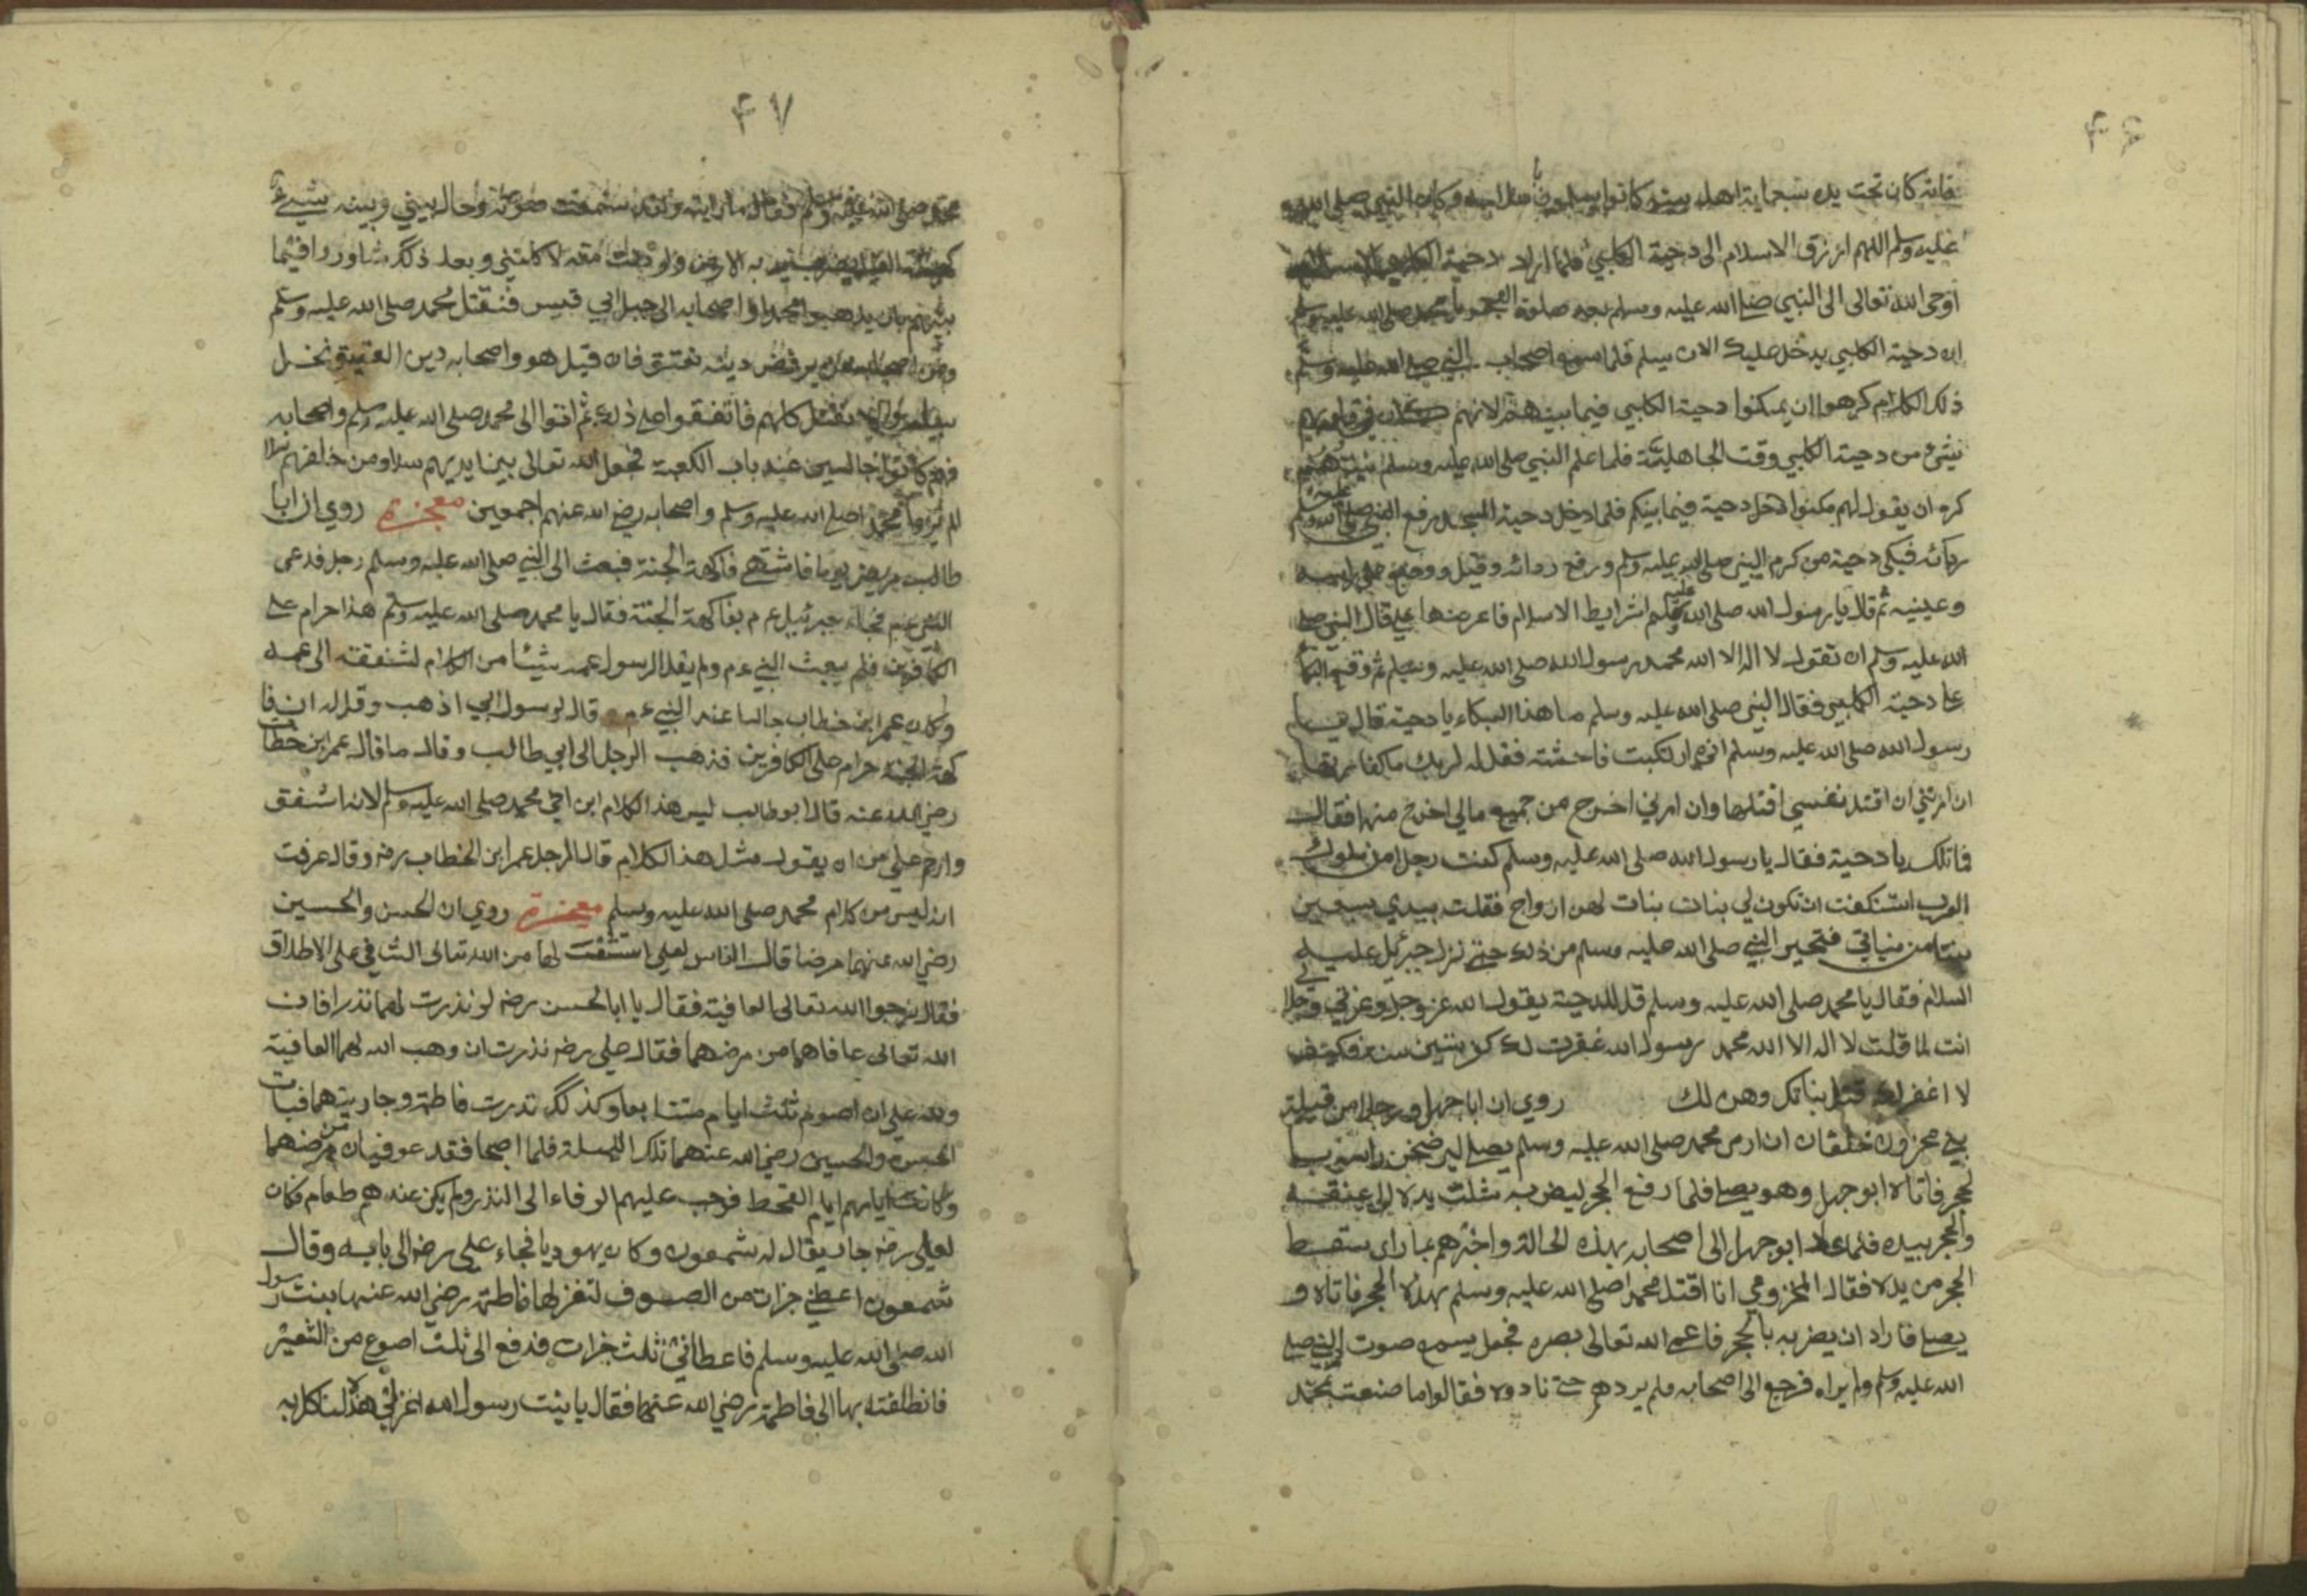 ۴۶
فانه كان تحت يده سبعماية اهل بيت كانوا يسلمون وكان النبي صلى الله
عليه وسلم اللهم ارزق الاسلام الى دحية الكلبي فلما اراد دحية الكلبي الاسلام
اوحى الله تعالى الى النبي صلى الله عليه وسلم بعد صلوة الفجر يا محمد صلى الله عليه وسلم
ان دحية الكلبي يدخل عليك الان يسلم فلما سمع اصحاب النبي صلى الله عليه وسلم
ذلك الكلام كرهوا ان يمكنوا دحية الكلبي فيما بينهم لانهم كان في قلوبهم
شئ من دحية الكلبي وقت الجاهلية فلما علم النبي صلى الله عليه وسلم
كره ان يقول لهم مكنوا دحية فيما بينكم فلما دخل دحية المسجد رفع النبي صلى الله عليه وسلم
ردائه فبكى دحية من كرم النبي صلى الله عليه وسلم ورفع ردائه وقبل ووضع على راسه
وعينيه ثم قال يا رسول الله صلى الله عليه وسلم شرايط الاسلام فاعرضها علي قال النبي صلى
الله عليه وسلم ان تقول لا اله الا الله محمد رسول الله صلى الله عليه وسلم ثم وقع البكاء
على دحية الكلبي فقال النبي صلى الله عليه وسلم ما هذا البكاء يا دحية قال يا
رسول الله صلى الله عليه وسلم اني ارتكبت فاحشة فقل له لربك ما كفارتها
ان امرتني ان اقتل نفسي اقتلها وان امرني اخرج من جميع مالي اخرج منها فقال
فما تلك يا دحية فقال يا رسول الله صلى الله عليه وسلم كنت رجلا من ملوك
العرب استنكفت ان تكون لي بنات بنات لهن ازواج فقتلت بيدي سبعين
بنتا من بناتي فتحير النبي صلى الله عليه وسلم من ذلك حتى نزل جبرئيل عليه
السلام فقال يا محمد صلى الله عليه وسلم قل للدحية يقول الله عز وجل وعزتي وجلالي
انت لما قلت لا اله الا الله محمد رسول الله غفرت لك كفر ستين سنة فكيف
لا اغفر لك قتل بناتك وهن لك روي ان ابا جهل ورجلا من قبيلة
بني مخزون خلفان ان ارى محمد صلى الله عليه وسلم يصلي ليرضخن راسه
لحجر فاتاه ابو جهل وهو يصلي فلما رفع الحجر ليضربه شلت يده الى عنقه
والحجر بيده فلما عاد ابو جهل الى اصحابه بهذه الحالة واخبرهم بما راى سقط
الحجر من يده فقال المخزومي انا اقتل محمدا صلى الله عليه وسلم بهذه الحجر فاتاه و
يصلي فاراد ان يضربه بالحجر فاعمى الله تعالى بصره فجعل يسمع صوت النبي صلى
الله عليه وسلم ولم يراه فرجع الى اصحابه فلم يردهم حتى نادوه فقالوا ما صنعت بمحمد
۴۷
محمد صلى الله عليه وسلم فقال ما رايته ولقد سمعت صوته وحال بيني وبينه شيء
كهيئة الفيل يضرب به الارض ولو دنوت معه لا كلتني وبعد ذلك شاوروا فيما
بينهم بان يذهبوا محمدا واصحابه الى جبل ابي قبيس فنقتل محمد صلى الله عليه وسلم
ومن اصحابه يرفض دينه نعتق فان قيل هو واصحابه دين العتيق نخل
نقتل كلهم فاتفقوا على ذلك ثم اتوا الى محمد صلى الله عليه وسلم واصحابه
فهم كانوا جالسين عند باب الكعبة فجعل الله تعالى بين ايديهم سدا ومن خلفهم سدا
لم يروا محمدا صلى الله عليه وسلم واصحابه رضي الله عنهم اجمعين معجزة روي ان ابا
طالب مرض يوما فاشتهى فاكهة الجنة فبعث الى النبي صلى الله عليه وسلم رجل فدعى
النبي عم فجاء جبرئيل عم بفاكهة الجنة فقال يا محمد صلى الله عليه وسلم هذا حرام على
الكافرين فلم يبعث النبي عم ولم يقل لرسول عمه شيئا من الكلام لشفقته الى عمه
وكان عمر ابن خطاب جالسا عند النبي عم قال لرسول ابي اذهب وقل له ان فا
كهة الجنة حرام على الكافرين فذهب الرجل الى ابي طالب وقال ما قال عمر ابن خطاب
رضي الله عنه قال ابو طالب ليس هذا الكلام ابن اخي محمد صلى الله عليه وسلم لانه اشفق
وارحم علي من ان يقول مثل هذا الكلام قال الرجل عمر ابن الخطاب رضه وقال عرفت
انه ليس من كلام محمد صلى الله عليه وسلم معجزة روي ان الحسن والحسين
رضي الله عنهما مرضا قال الناس لعلي استشفت لهما من الله تعالى الشافي على الاطلاق
فقال نرجوا الله تعالى العافية فقال يا ابا الحسن رضه لو نذرت لهما نذرا فان
الله تعالى عافاهما من مرضهما فقال علي رضه نذرت ان وهب الله لهما العافية
ولله علي ان اصوم ثلث ايام متتابعا وكذلك نذرت فاطمة وجاريتهما فبات
الحسن والحسين رضي الله عنهما تلك الليلة فلما اصبحا فقد عوفيان من مرضهما
وكانت ايامهم ايام القحط فوجب عليهم الوفاء الى النذر ولم يكن عندهم طعام فكان
لعلي رضه جار يقال له شمعون وكان يهوديا فجاء علي رضه الى بابه وقال
شمعون اعطني جزات من الصوف لتغزلها فاطمة رضي الله عنها بنت رسول
الله صلى الله عليه وسلم فاعطاني ثلث جزات فدفع الى ثلث اصوع من الشعير
فانطلقت بها الى فاطمة رضي الله عنها فقال يا بنت رسول الله اغزلي هذا لنا كلا به